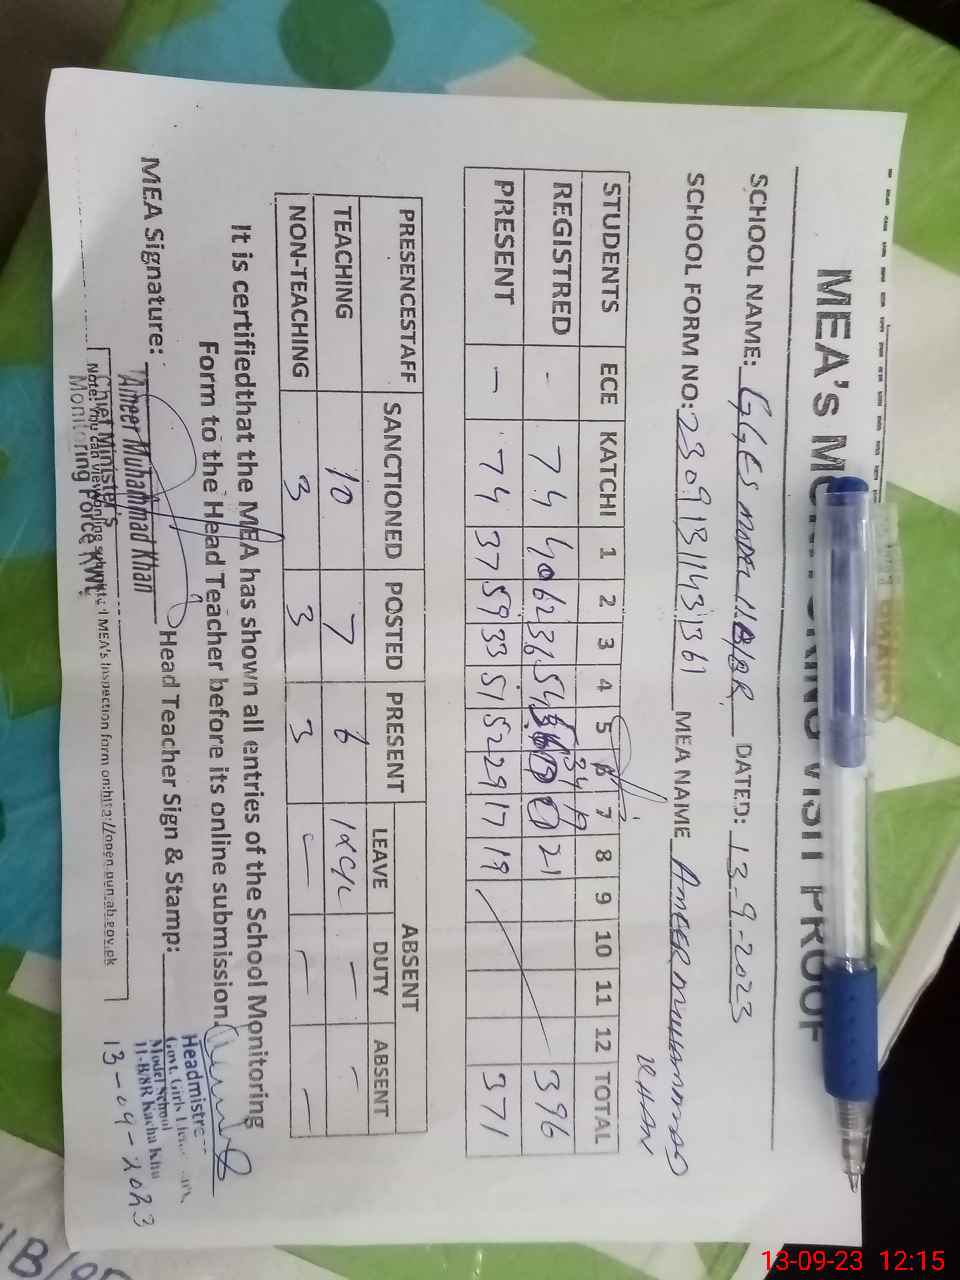 MEA's MONITORING VISIT PROOF
SCHOOL NAME: GGES MODEL 11.B/8R DATED: 13-9-2023
SCHOOL FORM NO: MEA NAME AMEER MUHAMMAD
KHAN
STUDENTS ECE KATCHI 1 2 3 4 5 6 7 8 9 10 11 12 TOTAL
34 19
REGISTRED - 74 40 62 36 54 21 396
PRESENT - 74 37 59 33 51 52 29 17 19 371
PRESENCESTAFF SANCTIONED POSTED PRESENT ABSENT
LEAVE DUTY ABSENT
TEACHING 10 7 6 - -
NON-TEACHING 3 3 3 - - -
It is certifiedthat the MEA has shown all entries of the School Monitoring
Form to the Head Teacher before its online submission.
MEA Signature: Head Teacher Sign & Stamp:
Ameer Muhammad Khan
Chief Minister's
Monitoring Force KWL
Note: You can view MEA's Inspection form on:http://open.punjab.gov.pk
Headmistre
Govt. Girls
Model School
11-B/8R Kacha Khu
13-09-2023
13-09-23 12:15